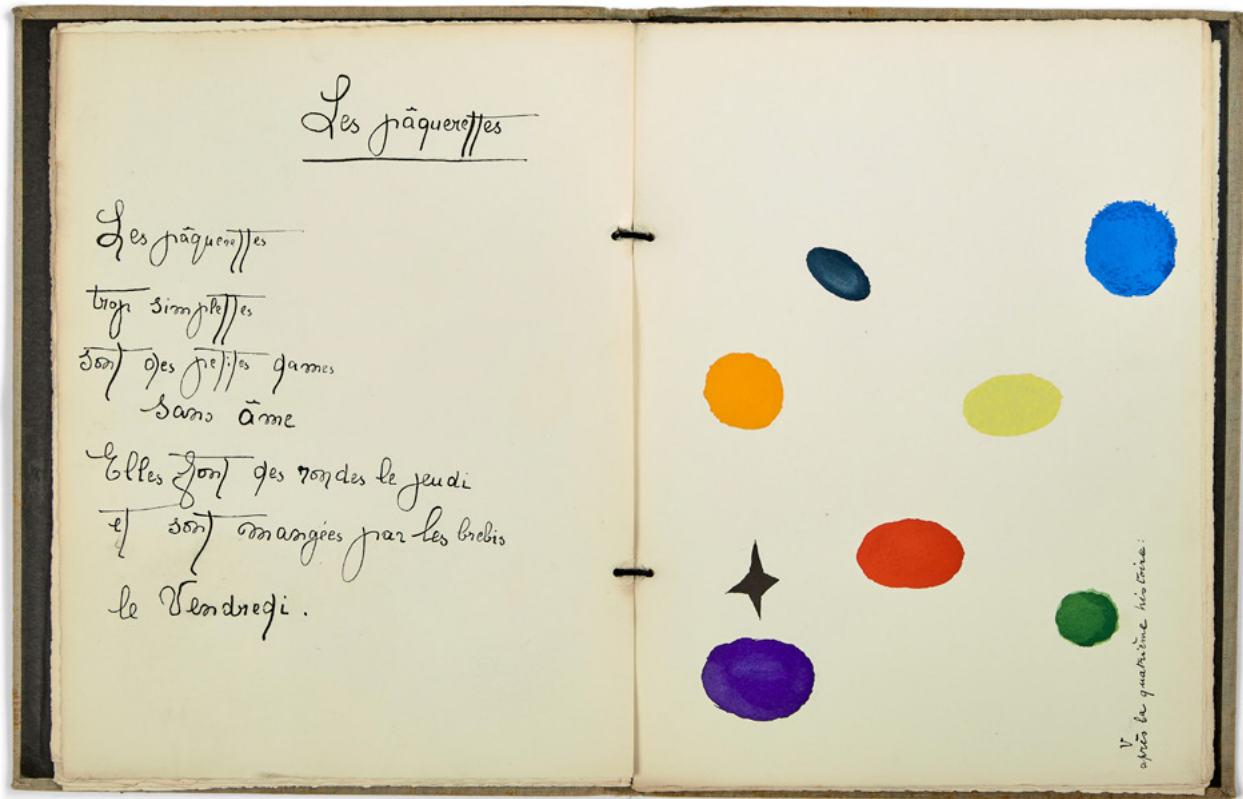 Les pâquerettes
Les pâquerettes
trop simplettes
sont des petites dames
sans âme
Elles font des rondes le jeudi
et sont mangées par les brebis
le Vendredi.
V
après la quatrième histoire: